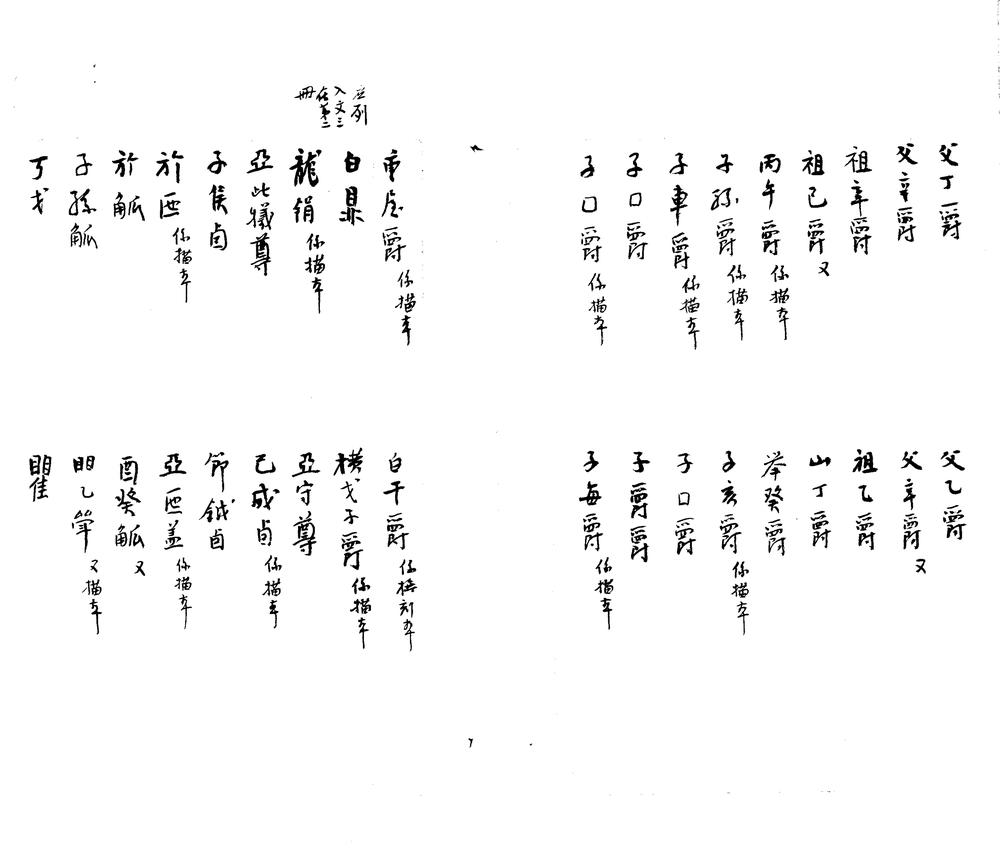 父丁爵
父辛爵
祖辛爵
祖己爵 又
丙午爵 係描本
子孫爵 係描本
子車爵 係描本
子口爵
子口爵 係描本
父乙爵
父辛爵 又
祖乙爵
山丁爵
举癸爵
子亥爵 係描本
子口爵
子爵爵
子每爵 係描本
爵 係描本
应列
入文三
伍第二
冊
白鼎
龍 係描本
亞此犧尊
子侯卣
於匜 係描本
於觚
子孫觚
丁戈
白干爵 係 刻本
横戈子爵 係描本
亞守尊
己成卣 係描本
節鉞卣
亞匜盖 係描本
酉癸觚 又
䀠乙斝 又描本
瞿